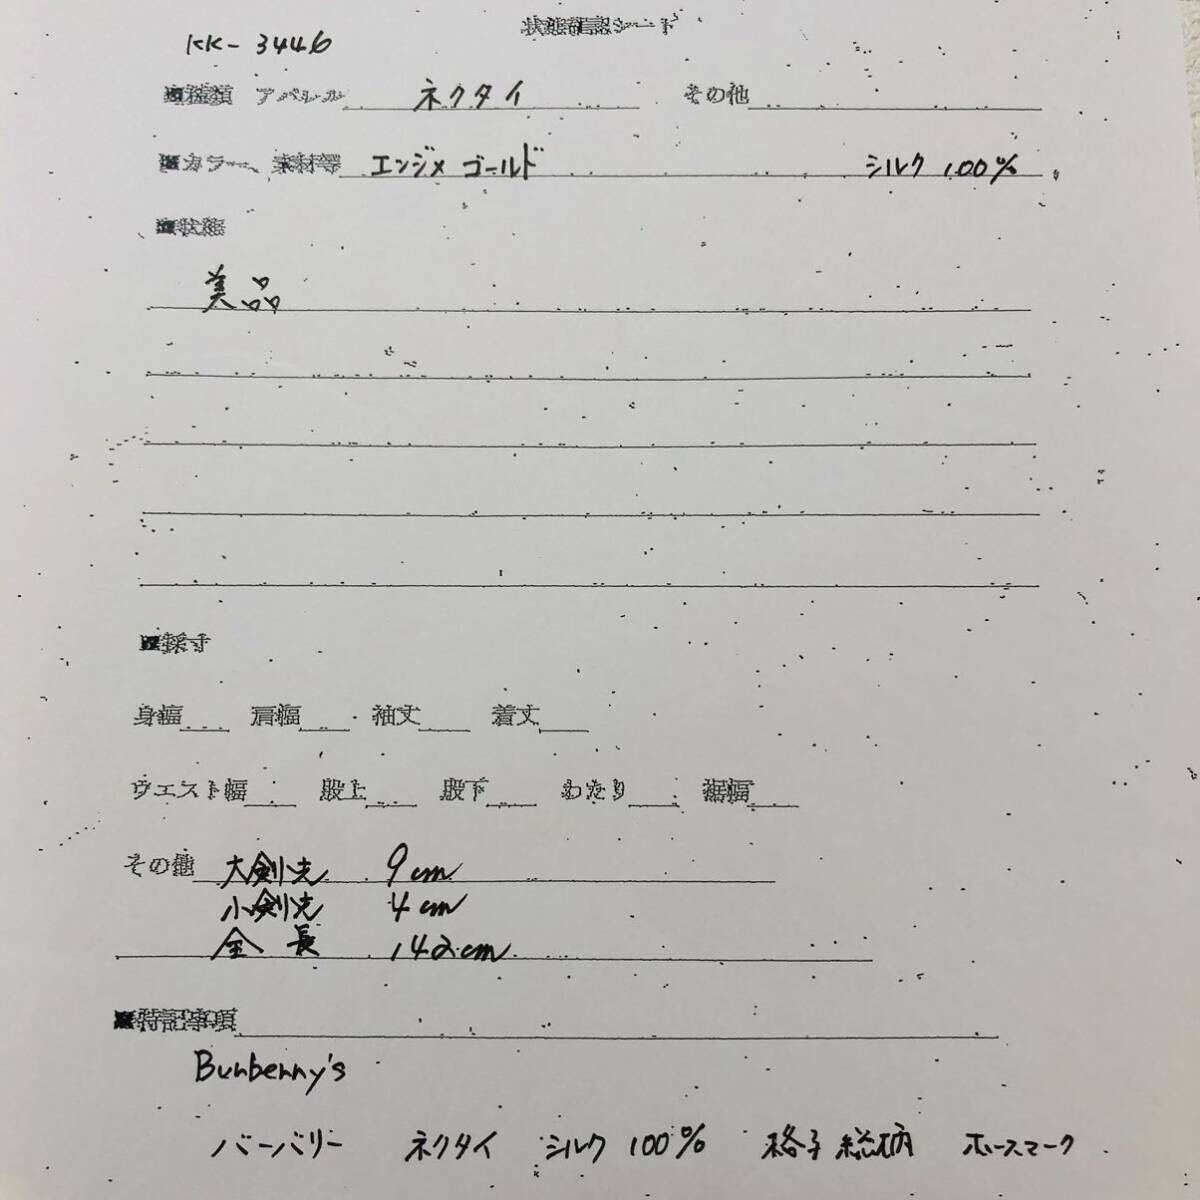 状態確認シート
KK-3446
■種類 アパレル ネクタイ その他
■カラー、素材等 エンジ×ゴールド シルク100%
■状態
美品
■採寸
身幅 肩幅 袖丈 着丈
ウエスト幅 股上 股下 わたり 裾幅
その他 大剣先 9cm
小剣先 4cm
全長 142cm
■特記事項
Burberry's
バーバリー ネクタイ シルク100% 格子総柄 ホースマーク